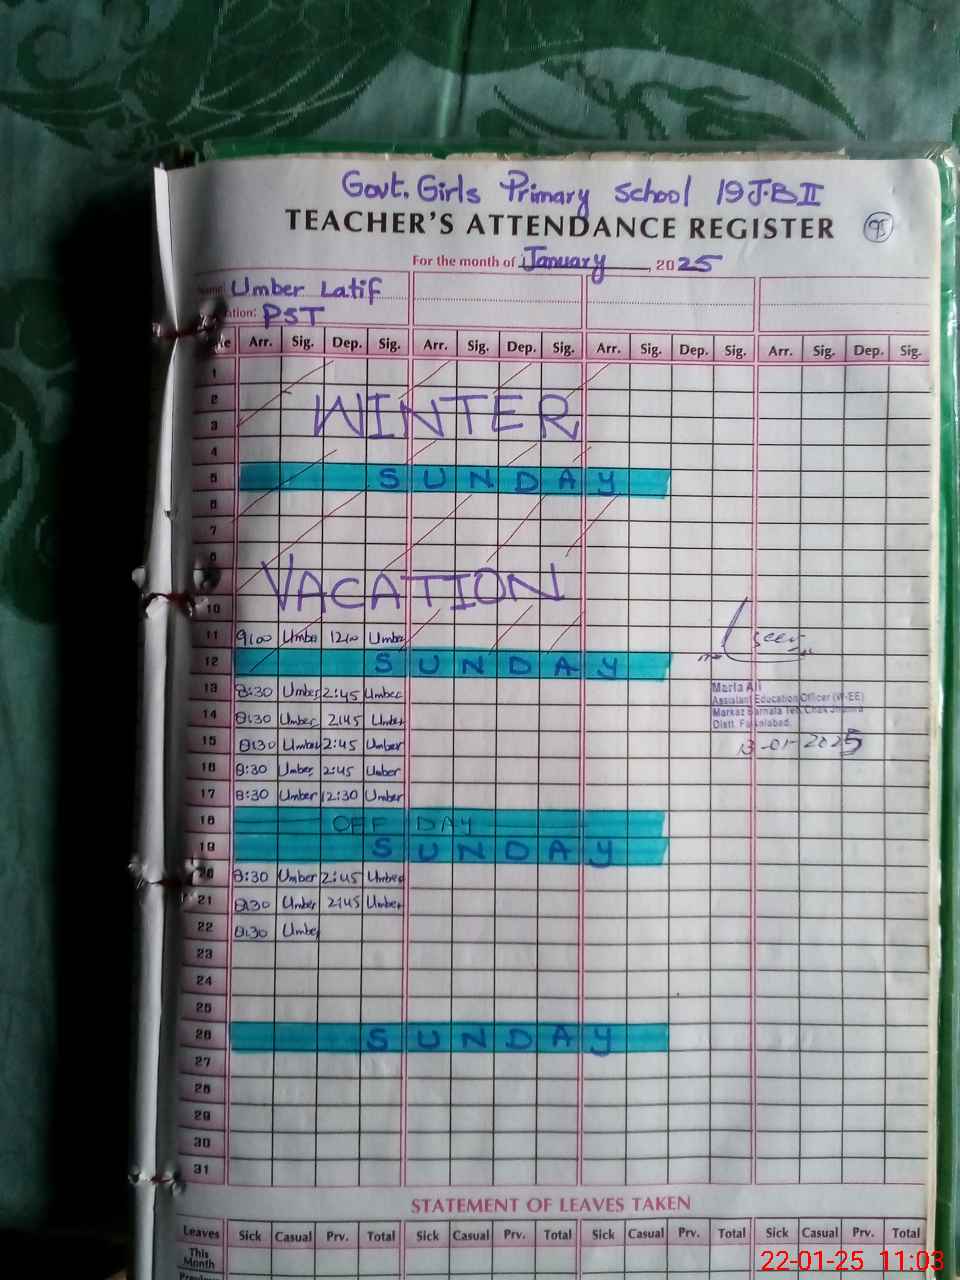 Govt. Girls Primary School 19 J.B II
TEACHER'S ATTENDANCE REGISTER
95
For the month of January, 2025
Name: Umber Latif
ation: PST
Arr. Sig. Dep. Sig. Arr. Sig. Dep. Sig. Arr. Sig. Dep. Sig. Arr. Sig. Dep. Sig.
1
2 WINTER
3
4
5 SUNDAY
6
7
8
VACATION
10
11 9:00 Umber 12:00 Umber
12 SUNDAY
13 8:30 Umber 2:45 Umber
14 8:30 Umber 2:45 Umber
15 8:30 Umber 2:45 Umber
16 8:30 Umber 2:45 Umber
17 8:30 Umber 12:30 Umber
18 OFF DAY
19 SUNDAY
20 8:30 Umber 2:45 Umber
21 8:30 Umber 2:45 Umber
22 8:30 Umber
23
24
25
26 SUNDAY
27
28
29
30
31
Maria Ali
Assistant Education Officer (W-EE)
Markaz Barnala Teh Chak Jhumra
Distt. Faisalabad.
13-01-2025
STATEMENT OF LEAVES TAKEN
Leaves Sick Casual Prv. Total Sick Casual Prv. Total Sick Casual Prv. Total Sick Casual Prv. Total
This
Month
22-01-25 11:03